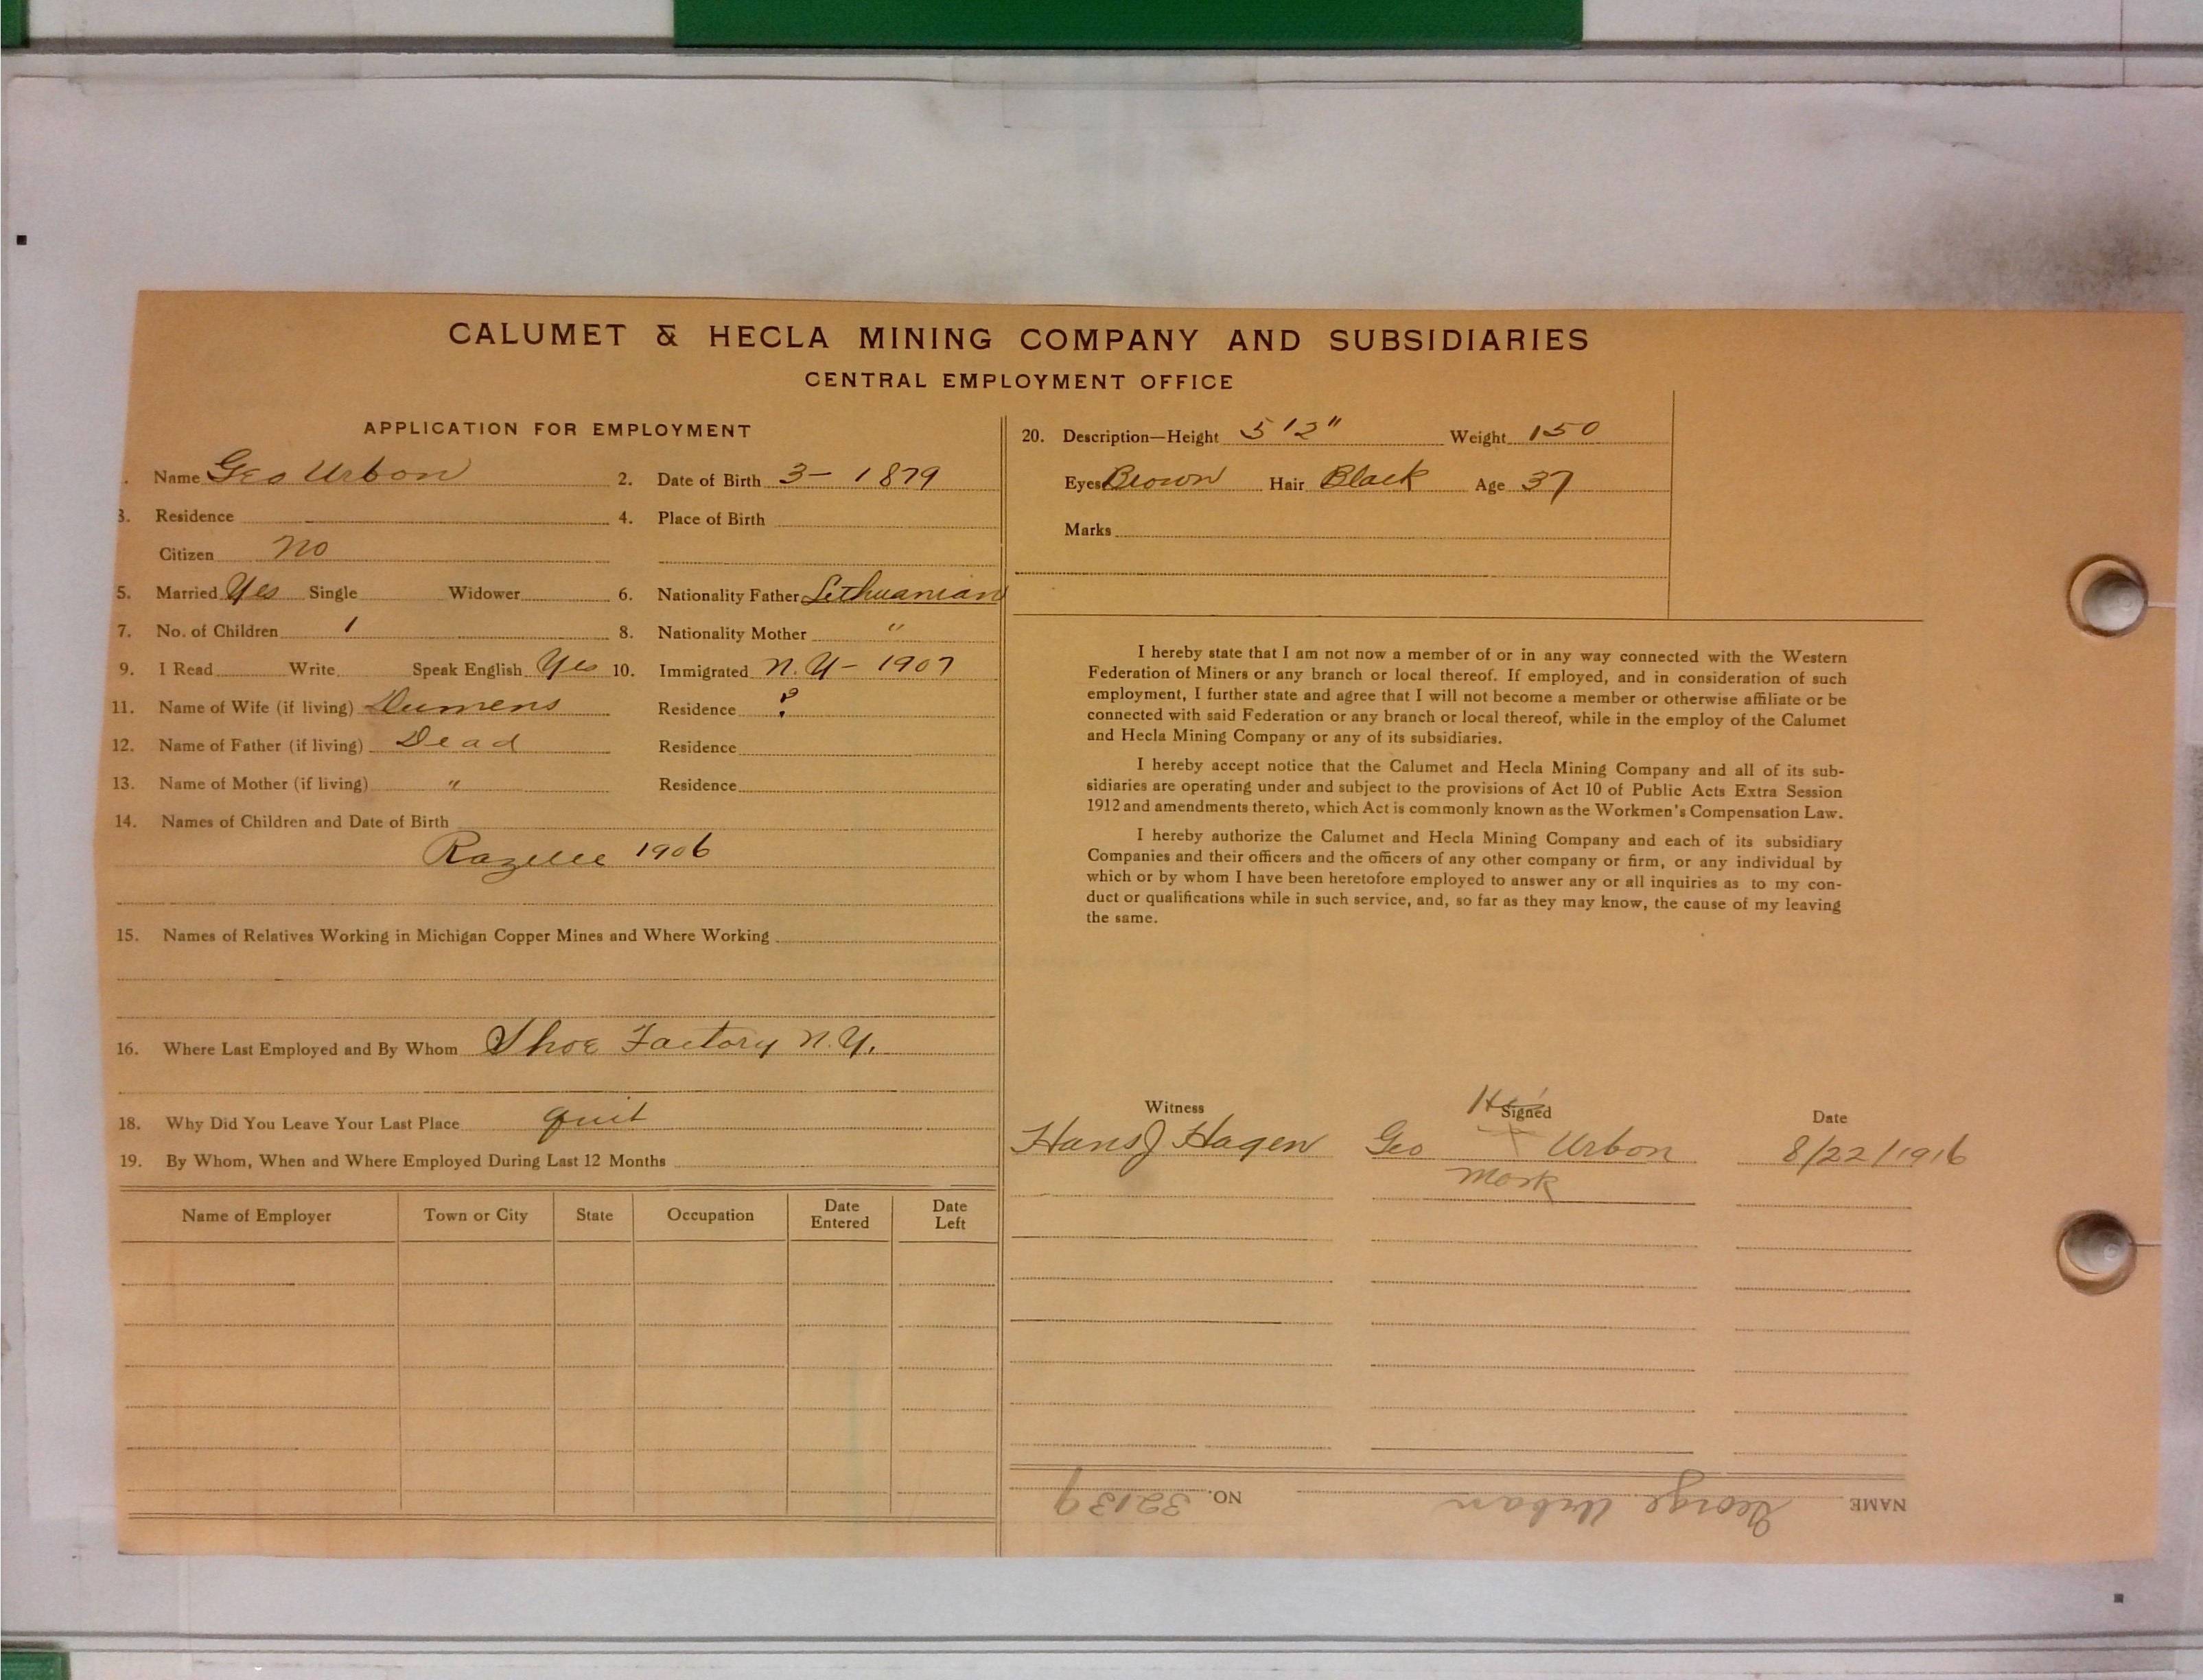 CALUMET & HECLA MINING COMPANY AND SUBSIDIARIES
CENTRAL EMPLOYMENT OFFICE
APPLICATION FOR EMPLOYMENT
. Name Geo Urbon 2. Date of Birth 3- 1879
3. Residence 4. Place of Birth
Citizen No
5. Married Yes Single Widower 6. Nationality Father Lithuanian
7. No. of Children 1 8. Nationality Mother "
9. I Read Write Speak English Yes 10. Immigrated N.Y- 1907
11. Name of Wife (if living) Dumens Residence ?
12. Name of Father (if living) Dead Residence
13. Name of Mother (if living) " Residence
14. Names of Children and Date of Birth
1906
15. Names of Relatives Working in Michigan Copper Mines and Where Working
16. Where Last Employed and By Whom Shoe Factory N.Y.
18. Why Did You Leave Your Last Place quit
19. By Whom, When and Where Employed During Last 12 Months
Name of Employer Town or City State Occupation Date Entered Date Left
20. Description—Height 5'2" Weight 150
Eyes Brown Hair Black Age 37
Marks
I hereby state that I am not now a member of or in any way connected with the Western
Federation of Miners or any branch or local thereof. If employed, and in consideration of such
employment, I further state and agree that I will not become a member or otherwise affiliate or be
connected with said Federation or any branch or local thereof, while in the employ of the Calumet
and Hecla Mining Company or any of its subsidiaries.
I hereby accept notice that the Calumet and Hecla Mining Company and all of its sub-
sidiaries are operating under and subject to the provisions of Act 10 of Public Acts Extra Session
1912 and amendments thereto, which Act is commonly known as the Workmen's Compensation Law.
I hereby authorize the Calumet and Hecla Mining Company and each of its subsidiary
Companies and their officers and the officers of any other company or firm, or any individual by
which or by whom I have been heretofore employed to answer any or all inquiries as to my con-
duct or qualifications while in such service, and, so far as they may know, the cause of my leaving
the same.
Witness His Signed Date
Hans J Hagen Geo X Urbon 8/22/1916
Mark
NAME George Urban NO. 32139